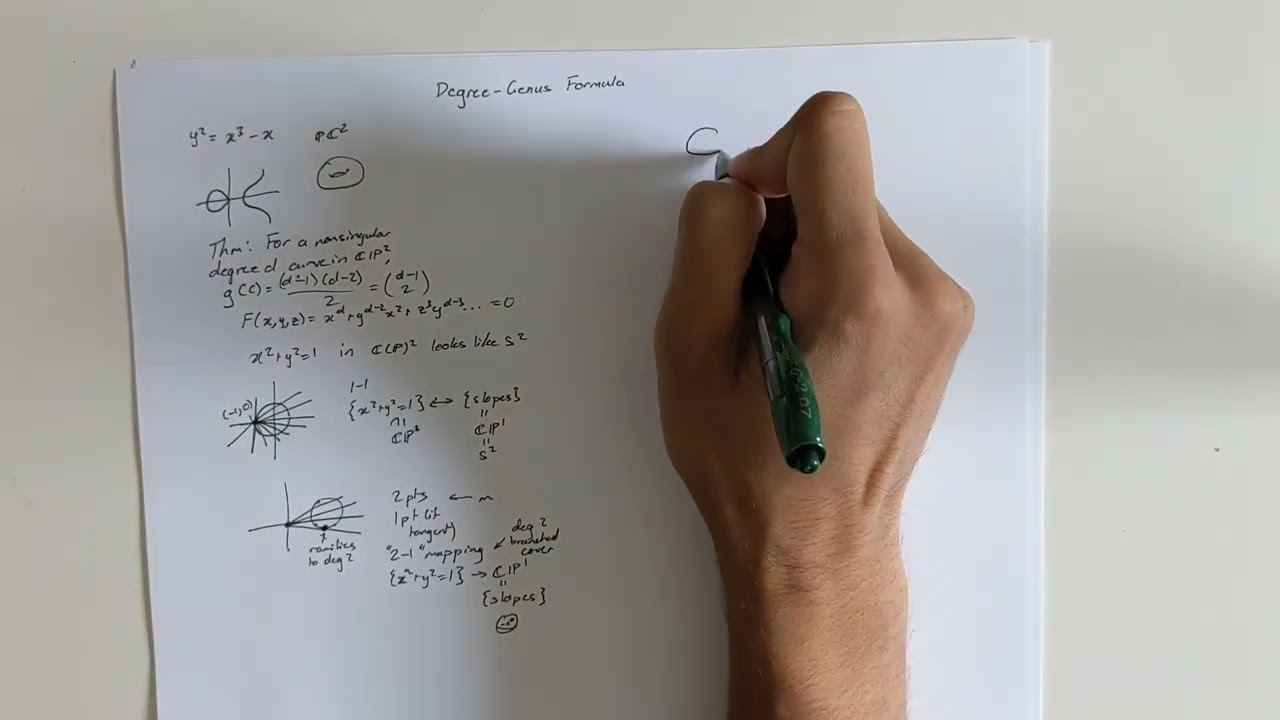 Degree-Genus Formula
y² = x³ - x   ℙℂ²
Thm: For a nonsingular
degree d curve in ℂℙ²,
g(C) = (d-1)(d-2)/2 = (d-1 2)
F(x,y,z) = x^d + y^(d-2)x² + z³y^(d-3)... = 0
x² + y² = 1 in ℂ(ℙ)² looks like S²
(-1,0)
1-1
{x²+y²=1} ↔ {slopes}
∩| ||
ℂℙ² ℂℙ¹
||
S²
2 pts ← m
1 pt (if
tangent)
ramifies
to deg 2
deg 2
branched
cover
"2-1" mapping
{x²+y²=1} → ℂℙ¹
||
{slopes}
C
0.7